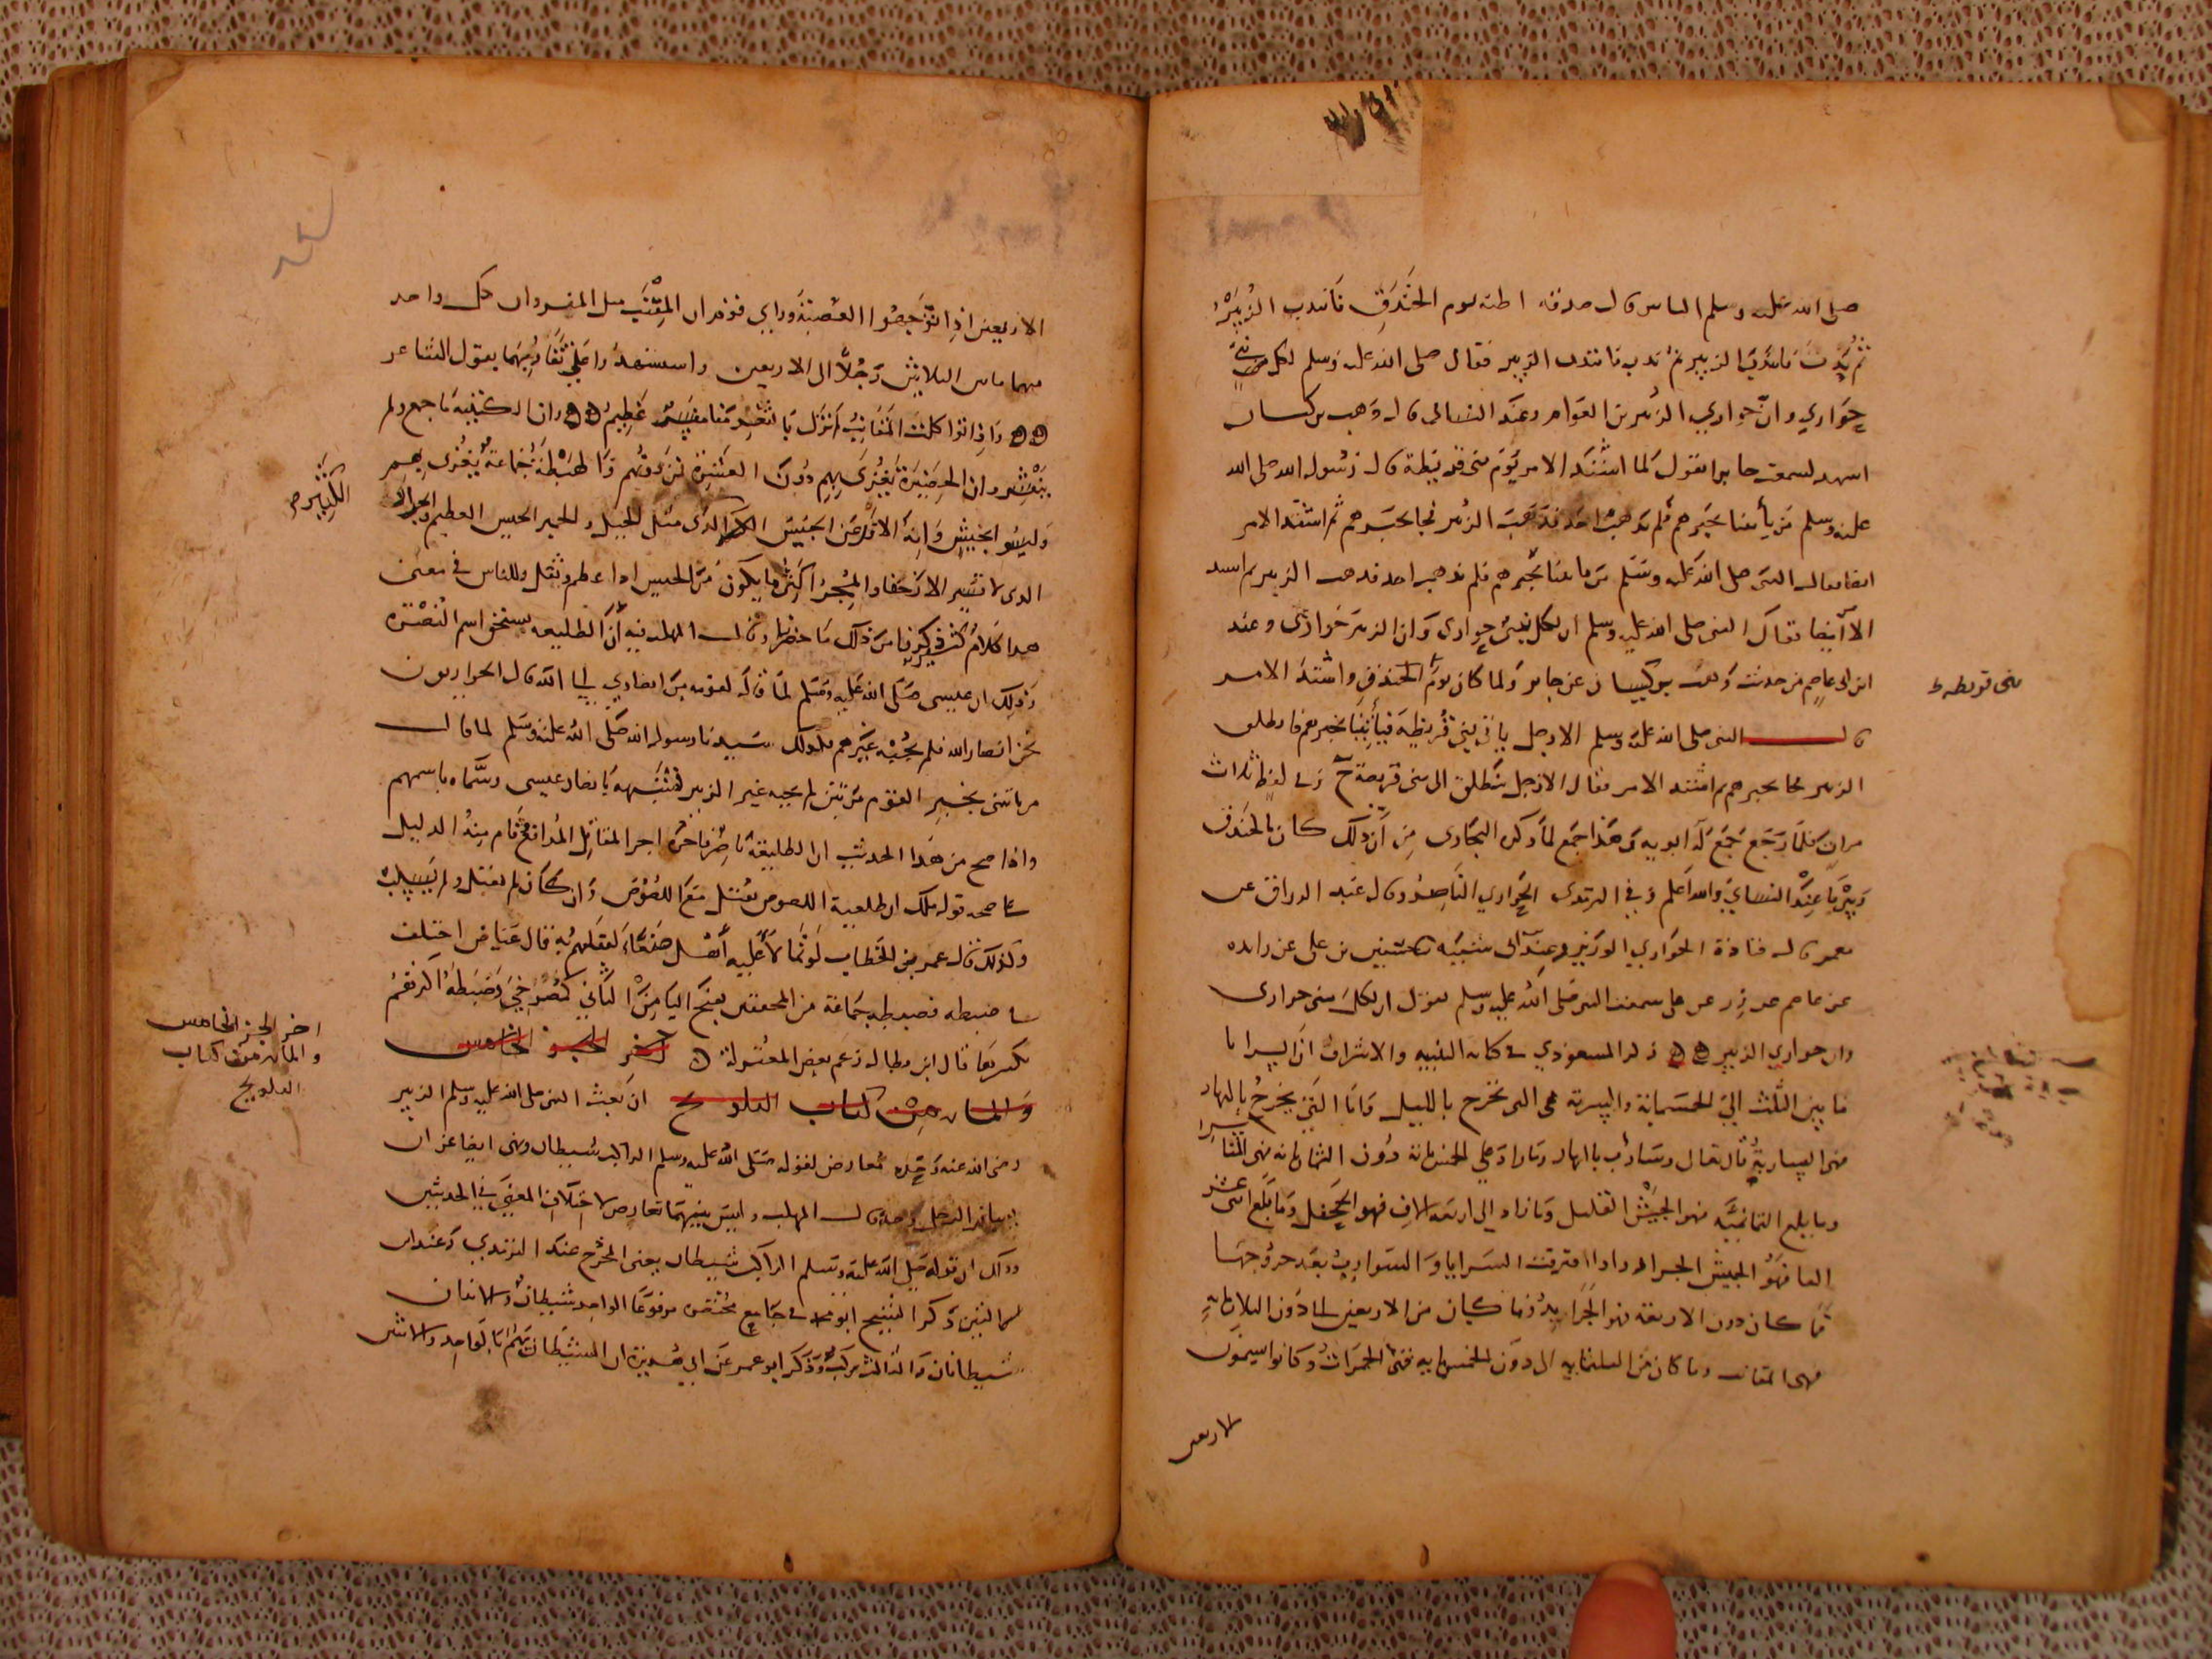 صلى الله عليه وسلم الناس قال صدقة اظنه يوم الخندق فانتدب الزبير
ثم ندب فانتدب الزبير ثم ندب فانتدب الزبير فقال صلى الله عليه وسلم لكل نبي
حواري وان حواري الزبير بن العوام وعند النسائي قال وهب بن كيسان
اشهد لسمعت جابرا يقول لما اشتد الامر يوم بني قريظة قال رسول الله صلى الله
عليه وسلم من يأتينا بخبرهم فلم يذهب احد فذهب الزبير فجا بخبرهم ثم اشتد الامر
ايضا فقال النبي صلى الله عليه وسلم من ياتينا بخبرهم فلم يذهب احد فذهب الزبير ثم اشتد
الامر ايضا فقال النبي صلى الله عليه وسلم ان لكل نبي حواري وان الزبير حواري وعند
ابن ابي عاصم من حديث وهب بن كيسان عن جابر ولما كان يوم الخندق واشتد الامر
بني قريظة ط
قال النبي صلى الله عليه وسلم الا رجل ياتي بني قريظة فيأتينا بخبرهم فانطلق
الزبير فجا بخبرهم ثم اشتد الامر فقال الا رجل ينطلق الى بني قريظة وفي لفظ ثلاث
مرات فلما رجع جمع له ابويه وهذا جمع لما ذكره البخاري من ان ذلك كان بالخندق
عند النسائي والله اعلم وفي الترمذي الحواري الناصر وقال عبد الرزاق عن
معمر قال قتادة الحواري الوزير وعند ابي شيبه حسين بن علي عن زايده
عن عاصم عن زر عن علي سمعت النبي صلى الله عليه وسلم يقول ان لكل نبي حواري
وان حواري الزبير ذكر المسعودي في كتابه التنبيه والاشراف ان السرايا
ما بين الثلث الى الخمسمائة والسرية هي التي تخرج بالليل واما التي تخرج بالنهار
فهي السارية قال تعالى وسارب بالنهار وما زاد على الخمسمائة دون الثمانمائة فهي المناسر
وما بلغ الثمانمية فهو الجيش القليل وما زاد الى اربعة الاف فهو الجحفل وما بلغ اثنى عشر
الفا فهو الجيش الجرار واذا افترقت السرايا والسوارب بعد خروجها
فما كان دون الاربعة فهو الجرايد وما كان من الاربعين الى دون الثلاثماية
فهي المقانب وما كان من الثلثماية الى دون الخمسماية فهي الجمرات وكانوا يسمون
الاربعين
الاربعين اذا توجهوا العصبة وراي قوم ان المقنب مثل المنسر وان كل واحد
منهما ما بين الثلاثين رجلا الى الاربعين واستشهد وا على تقاربهما بقول الشاعر
واذا تواكلت المقانب لم يزل بالثغر منا منسر عظيم وان الكتيبة ما جمع ولم
ينتشر وان الحضيرة يغزى بهم دون العشرة نزدونهم والهيطة جماعة يغزى بهم
الكثيره
وليسو ابجيش وان الارعن الجيش الكبير الذي مثل الجبل والخميس الجيش العظيم والجرار
الذي لا يسير الا زحفا والمجر اكثر ما يكون من الجيش اذا عظم وثقل وللناس في معنى
هذا كلام كثير ذكرنا من ذلك ما حضرنا وقال المهلب فيه ان الطليعه يستحق اسم النصرة
وذلك ان عيسى صلى الله عليه وسلم لما قال لقومه من انصاري الى الله قال الحواريون
نحن انصار الله فلم يجبه غيرهم فلذلك سيدنا رسول الله صلى الله عليه وسلم لما قال
من ياتيني بخبر القوم مرتين لم يجبه غير الزبير فشبهه بانصار عيسى وسماه باسمهم
واذا صح من هذا الحديث ان الطليعة ناصر فاجره اجر المقاتل المدافع قام منه الدليل
على صحة قول مالك ان طليعة اللصوص تقتل مع اللصوص وان كان لم يقتل ولم يسلب
وكذلك قال عمر بن الخطاب لو تمالأ عليه أهل صنعاء لقتلتهم به قال عياض اختلف
في ضبطه فضبطه جماعة من المحققين بفتح اليا من الثاني كمصرخي وضبطه اكثرهم
بكسرها قال ابن بطال زعم بعض المعتزلة اخر الجز الخامس
والمائه من كتاب التلويح ان بعث النبي صلى الله عليه وسلم الزبير
اخر الجز الخامس
والمائه من كتاب
التلويح
رضي الله عنه وحده معارض لقوله صلى الله عليه وسلم الراكب شيطان ونهى ايضا عن ان
يسافر الرجل وحده قال المهلب وليس بينهما تعارض لاختلاف المعنى في الحديثين
وذلك ان قوله صلى الله عليه وسلم الراكب شيطان يعني المخرج عند الترمذي وعند
ذكر الشيخ ابو محمد في جامع مختصر مرفوعا الواحد شيطان والاثنان
شيطانان والثالث ركب وذكر ابو عمر عن ابي هريرة ان الشيطان يهم بالواحد والاثنين